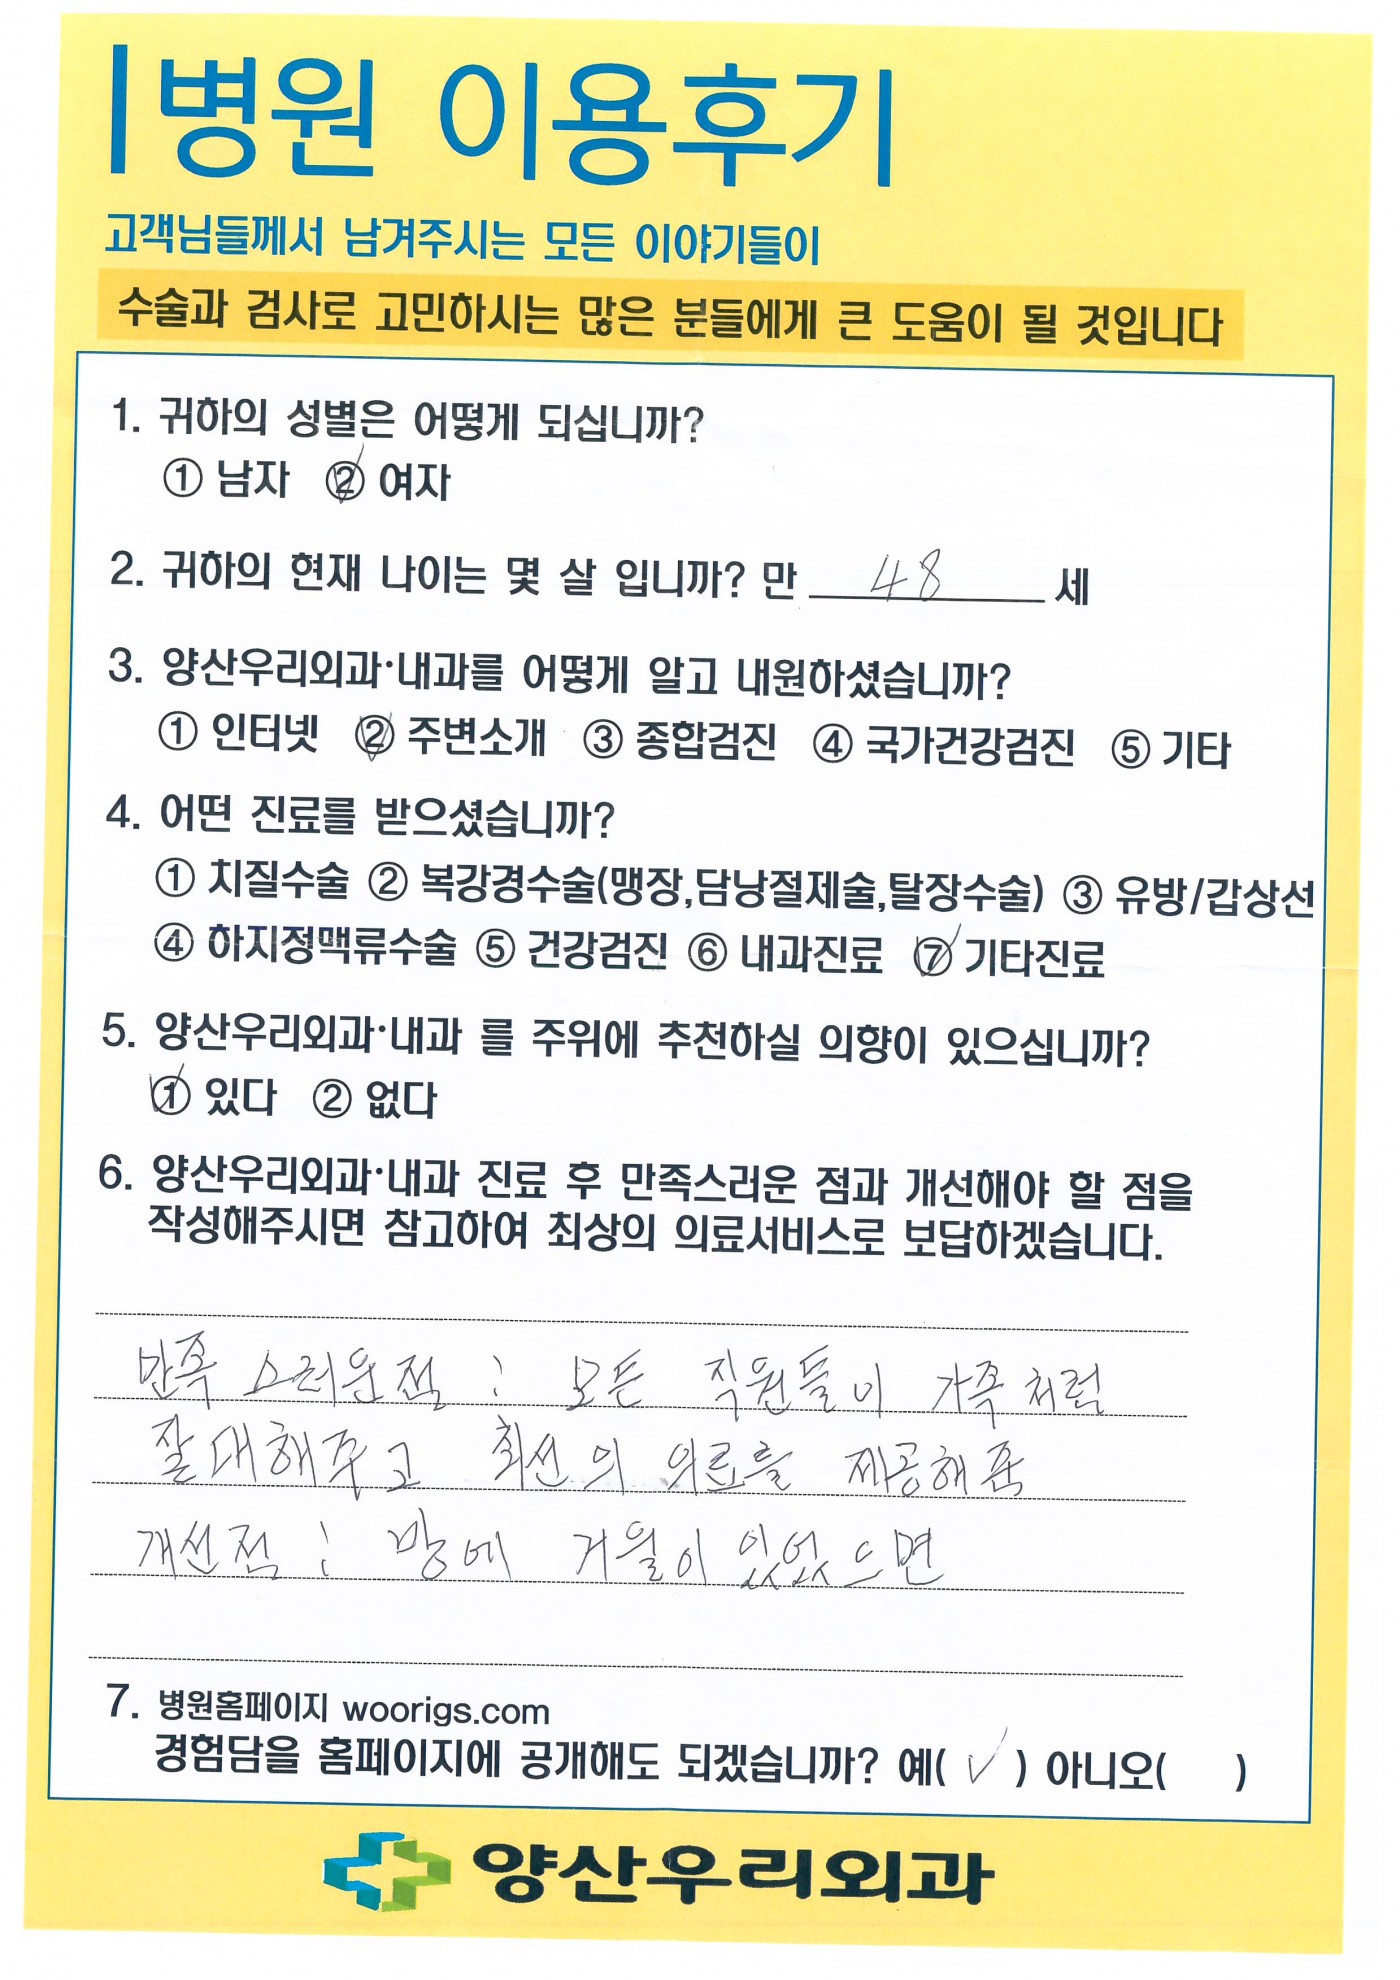 병원 이용후기
고객님들께서 남겨주시는 모든 이야기들이
수술과 검사로 고민하시는 많은 분들에게 큰 도움이 될 것입니다
1. 귀하의 성별은 어떻게 되십니까?
① 남자 ② 여자
2. 귀하의 현재 나이는 몇 살 입니까? 만 48 세
3. 양산우리외과·내과를 어떻게 알고 내원하셨습니까?
① 인터넷 ② 주변소개 ③ 종합검진 ④ 국가건강검진 ⑤ 기타
4. 어떤 진료를 받으셨습니까?
① 치질수술 ② 복강경수술(맹장,담낭절제술,탈장수술) ③ 유방/갑상선
④ 하지정맥류수술 ⑤ 건강검진 ⑥ 내과진료 ⑦ 기타진료
5. 양산우리외과·내과 를 주위에 추천하실 의향이 있으십니까?
① 있다 ② 없다
6. 양산우리외과·내과 진료 후 만족스러운 점과 개선해야 할 점을
작성해주시면 참고하여 최상의 의료서비스로 보답하겠습니다.
만족스러운점 : 모든 직원들이 가족처럼
잘대해주고 최선의 의료를 제공해줌
개선점 : 방에 거울이 있었으면
7. 병원홈페이지 woorigs.com
경험담을 홈페이지에 공개해도 되겠습니까? 예( ✓ ) 아니오( )
양산우리외과